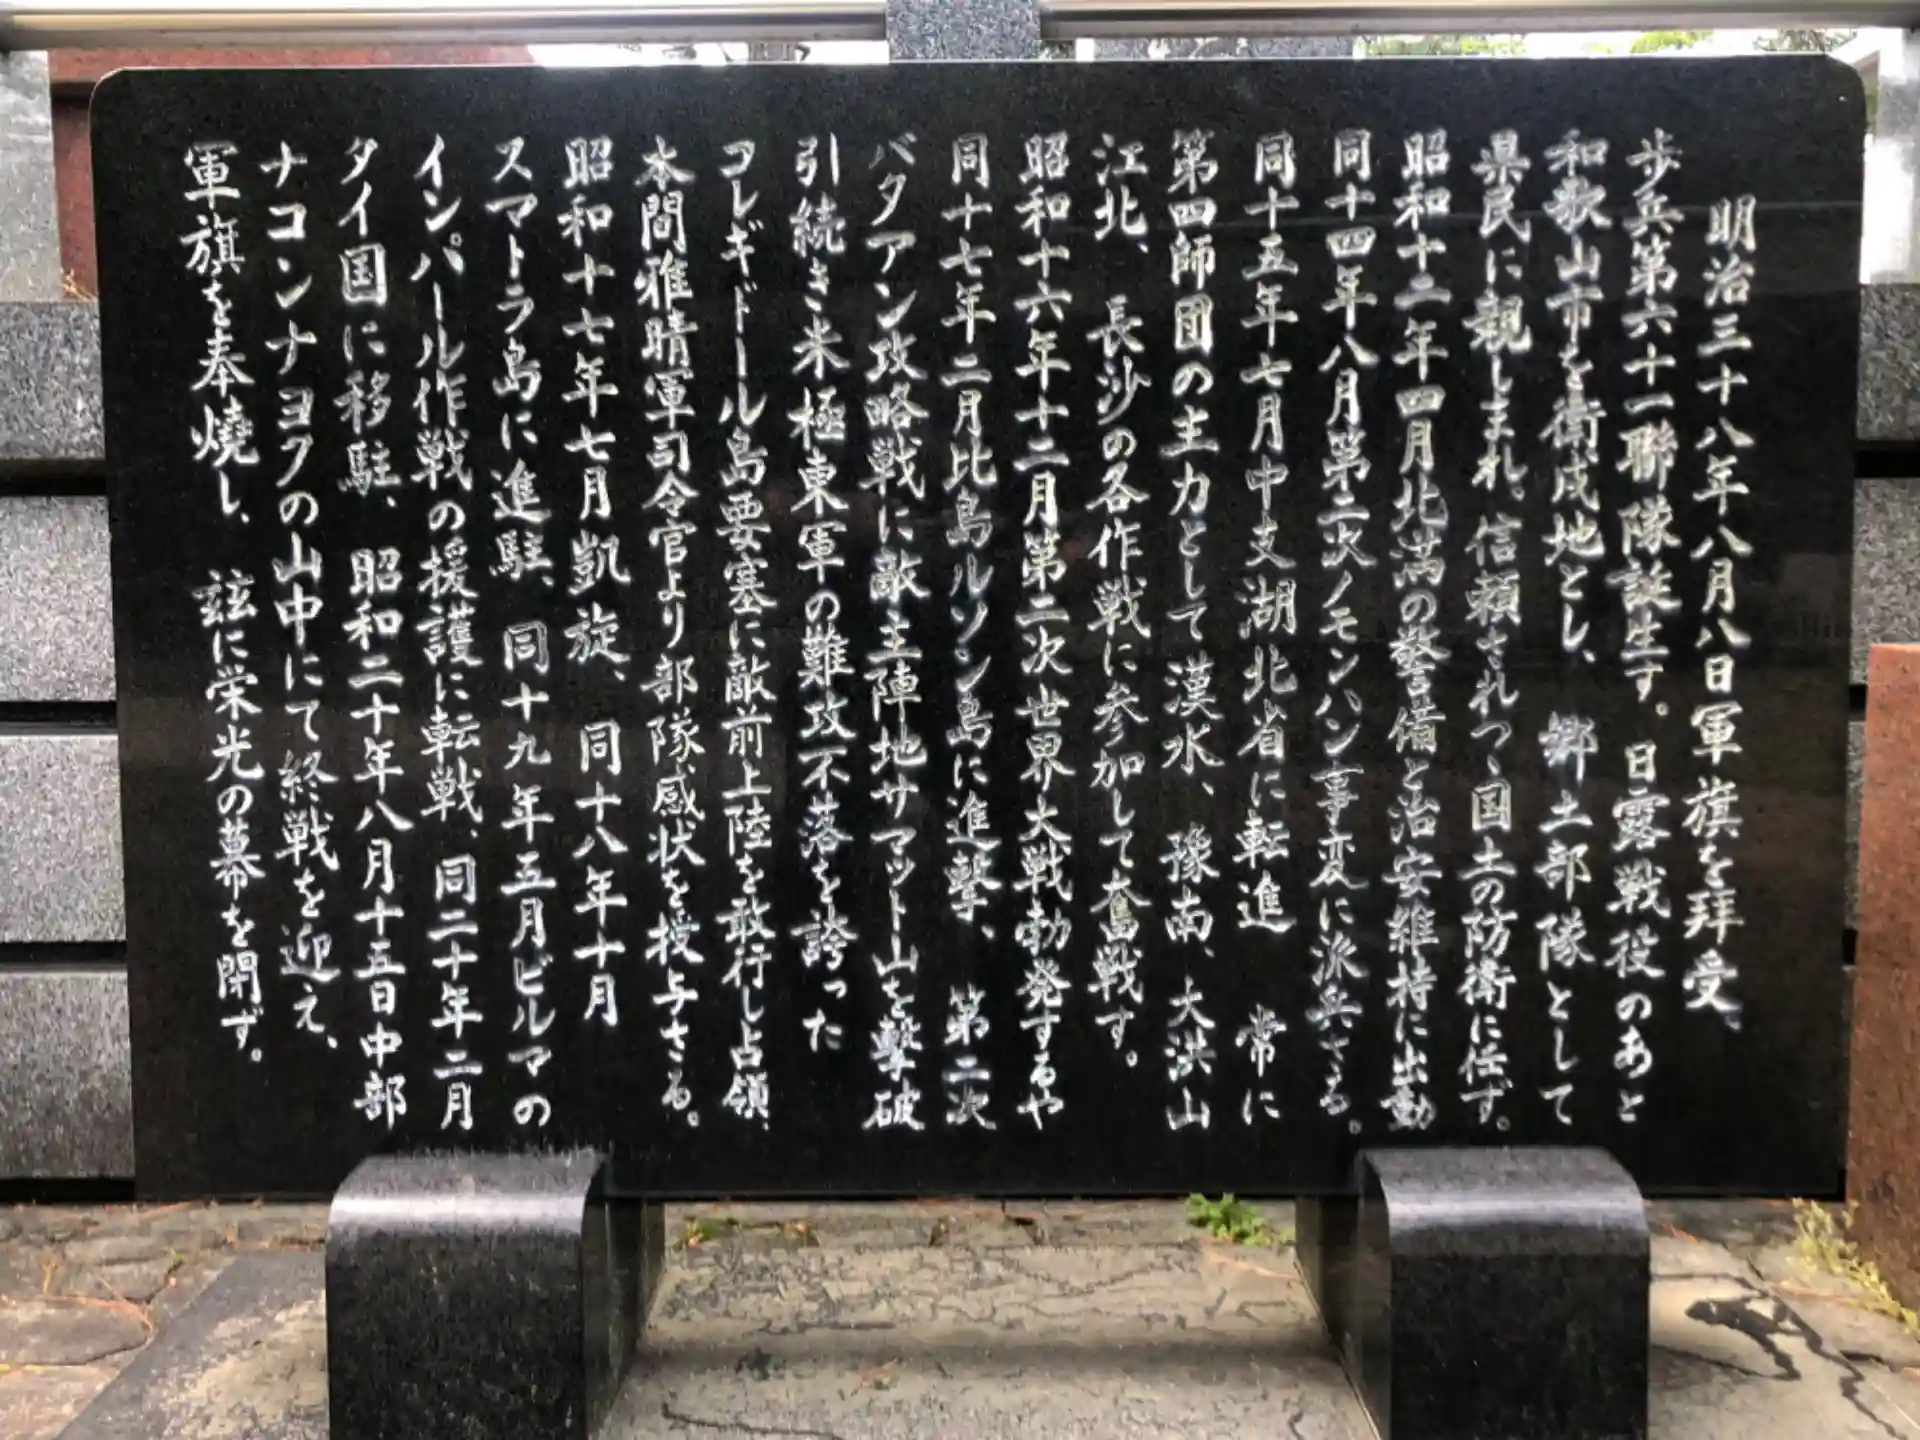 明治三十八年八月八日軍旗を拝受、
歩兵第六十一聯隊誕生す。日露戦役のあと
和歌山市を衛戍地とし、郷土部隊として
県民に親しまれ、信頼されつゝ国土の防衛に任ず。
昭和十二年四月北満の警備と治安維持に出動
同十四年八月第二次ノモンハン事変に派兵さる。
同十五年七月中支湖北省に転進 常に
第四師団の主力として漢水、豫南、大洪山
江北、長沙の各作戦に参加して奮戦す。
昭和十六年十二月第二次世界大戦勃発するや
同十七年二月比島ルソン島に進撃、第二次
バタアン攻略戦に敵主陣地サマット山を撃破
引続き米極東軍の難攻不落を誇った
コレギドール島要塞に敵前上陸を敢行し占領、
本間雅晴軍司令官より部隊感状を授与さる。
昭和十七年七月凱旋、同十八年十月
スマトラ島に進駐、同十九年五月ビルマの
インパール作戦の援護に転戦、同二十年二月
タイ国に移駐、昭和二十年八月十五日中部
ナコンナヨクの山中にて終戦を迎え、
軍旗を奉燒し、玆に栄光の幕を閉ず。